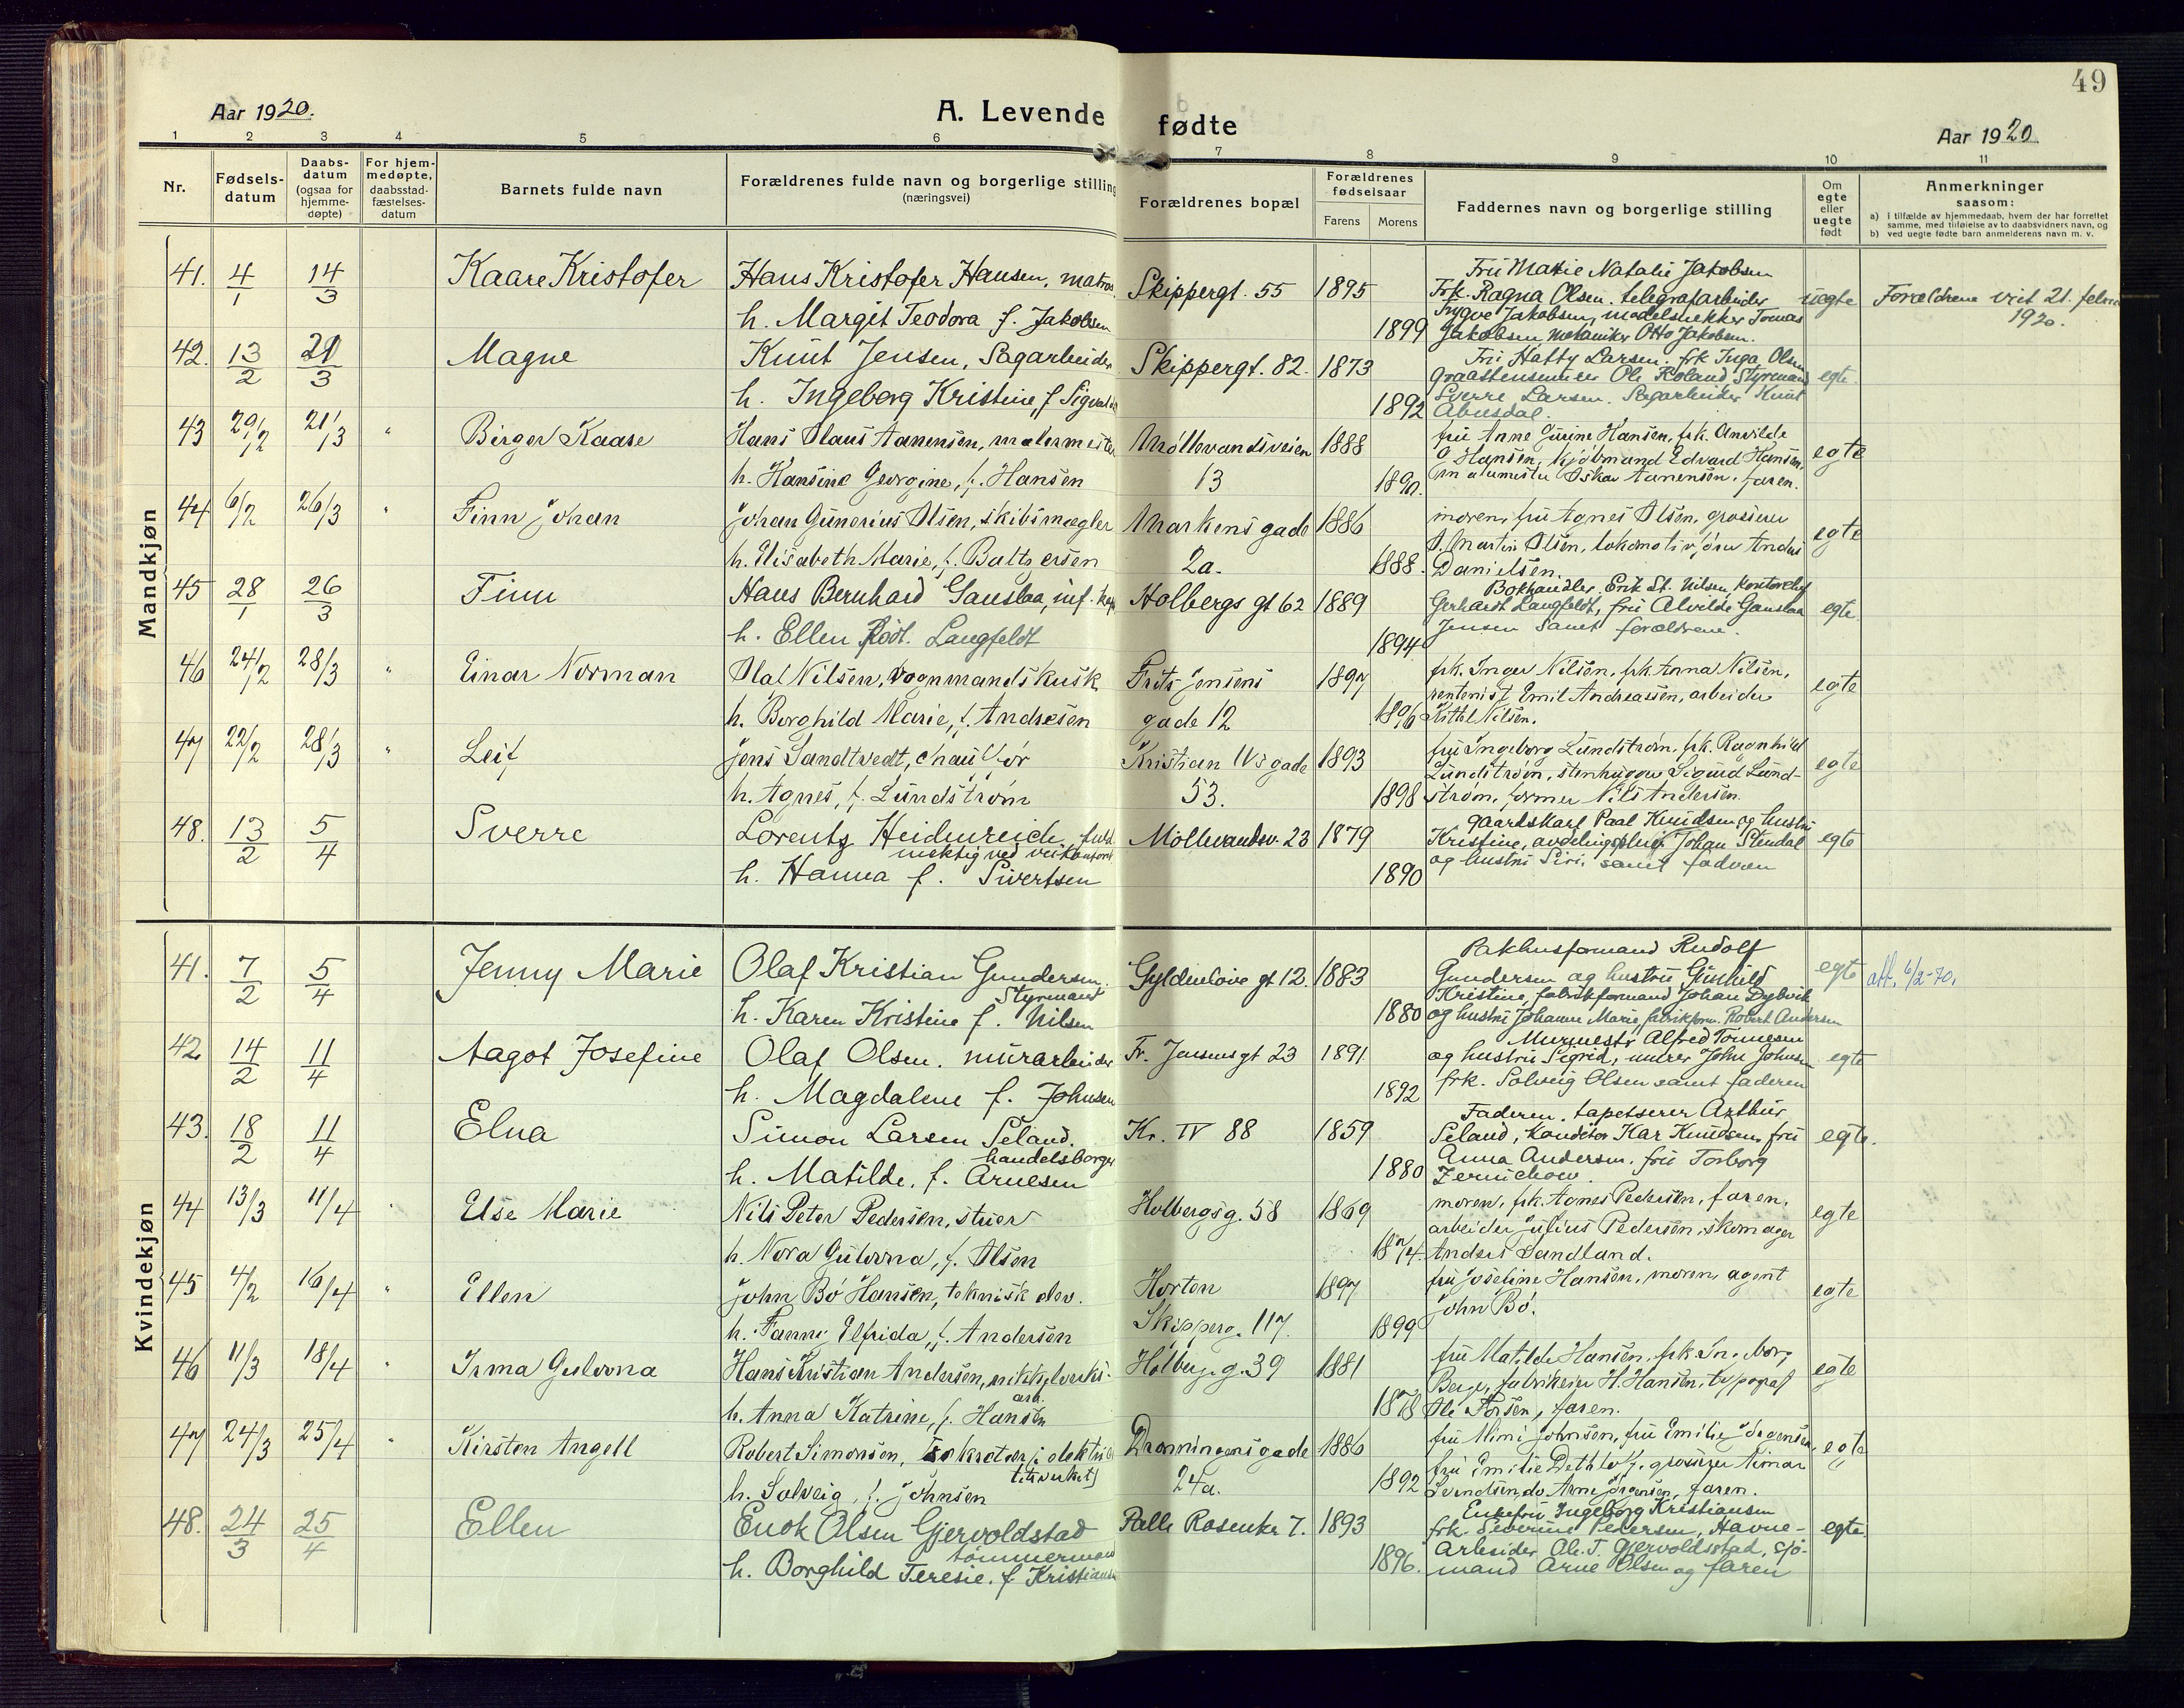 49
Aar 1920.
A. Levende fødte
Aar 1920
1 2 3 4 5 6 7 8 9 10 11
Nr.
Fødsels-
datum
Daabs-
datum
(ogsaa for
hjemme-
døpte)
For hjem-
medøpte,
daabsstad-
fæstelses-
datum
Barnets fulde navn
Forældrenes fulde navn og borgerlige stilling
(næringsvei)
Forældrenes bopæl
Forældrenes
fødselsaar
Farens Morens
Faddernes navn og borgerlige stilling
Om
egte
eller
uegte
født
Anmerkninger
saasom:
a) i tilfælde av hjemmedaab, hvem der har forrettet
samme, med tilføielse av to daabsvidners navn, og
b) ved uegte fødte barn anmelderens navn m. v.
Mandkjøn
41. 4/1 14/3 Kaare Kristofer
Hans Kristofer Hansen, matros
h. Margit Teodora f. Jakobsen
Skippergt. 55 1895
1899
Fru Marie Natalie Jakobsen
Frk. Ragna Olsen. telegrafarbeider
Trygve Jakobsen, modelsnekker Tomas
Jakobsen, mekaniker Otto Jakobsen.
uegte
Forældrene viet 21. febru
1920.
42. 13/2 21/3 Magne
Knut Jensen, Sagarbeider
h. Ingeborg Kristine, f Sigvalds
Skippergt. 82. 1873
1892
Fru Hatty Larsen. frk Inga Olsen
Ole Roland Styrmand
Sverre Larsen. Sagarbeider Knut
Abusdal.
egte.
43 29/2 21/3 " Birger Kaare
Hans Olaus Aanensen, malermester
h. Hansine Georgine, f. Hansen
Møllevandsveien
13
1888
1890.
fru Anne Gurine Hansen, frk. Anvilde
Hansen, kjøbmand Edvard Hansen,
Oskar Aanensen. faren.
egte
44 6/2 26/3 " Finn Johan
Johan Gunerius Olsen, skibsmægler
h. Elisabeth Marie, f. Baltzersen
Markens gade
2a.
1886
1888.
moren, fru Agnes Olsen, grosserer
O. Martin Olsen, lokomotivfører Anders
Danielsen.
egte
45 28/1 26/3 Finn
Hans Bernhard Gauslaa, inf. kapt
h. Ellen født. Langfeldt
Holbergs gt 62 1889
1894
Bokhandler Erik St. Nilsen, Kontorchef
Gerhardt Langfeldt, fru Alvilde Gauslaa
Jensen samt forældrene.
egte
46 24/2 28/3 " Einar Norman
Olaf Nilsen, vognmandskusk
h. Borghild Marie, f. Andresen
Frits Jensens
gade 12
1897
1896
frk. Inger Nilsen, frk Anna Nilsen,
rentenist Emil Andreassen, arbeider
Kittel Nilsen.
egte
47 22/2 28/3 " Leif
Jens Sandtvedt, chauffør
h. Agnes, f. Lundstrøm
Kristian IVs gade
53.
1893
1898
fru Ingeborg Lundstrøm, frk. Ragnhild
Lundstrøm, stenhugger Sigurd Lund-
strøm, former Nils Andersen.
egte
48. 13/2 5/4 Sverre
Lorentz Heidenreich. fuld
mektig ved veikontoret
h. Hanna f. Sivertsen
Møllevandsv. 23 1879
1890
gaardskarl Paal Knudsen og hustru
Kristine, avdelingschef Johan Stendal
og hustru Siri, samt faderen
egte
Kvindekjøn
41. 7/2 5/4 Jenny Marie
Olaf Kristian Gundersen.
Styrmand
h. Karen Kristine f. Nilsen
Gyldenløve gt 12. 1883
1880
Pakhusformand Rudolf
Gundersen og hustru Gunhild
Kristine, fabrikformand Johan Dybvik
og hustru Johanne Marie, fabrikform. Robert Andersen
egte
att. 6/2-70.
42. 14/2 11/4 Aagot Josefine
Olaf Olsen. murarbeider
h. Magdalene f. Johnsen
Fr. Jensensgt 23 1891
1892
Murmester Alfred Tonnesen
og hustru Sigrid, murer John Johnsen
frk. Solveig Olsen samt faderen
egte
43. 18/2 11/4 Elna
Simon Larsen Seland.
handelsborger
h. Matilde. f. Arnesen
Kr. IV 88 1859
1880
Faderen, tapetserer Arthur
Seland, Konditor Kar Knudsen, fru
Anna Andersen, fru Torborg
Zernichow.
egte.
44 13/3 11/4 " Else Marie
Nils Peter Pedersen, stuer
h. Nora Gulovna, f. Olsen
Holbergsg. 58 1869
1874.
moren, frk. Agnes Pedersen, faren,
arbeider Julius Pedersen, skomager
Anders Sandland.
egte
45 4/2 16/4 " Ellen
John Bø Hansen, teknisk elev.
h. Fanny Elfrida, f. Andersen
Horten
Skipperg. 117.
1897
1899
fru Josefine Hansen, moren, agent
John Bø.
egte
46 11/3 18/4 " Irma Gulovna
Hans Kristian Andersen, nikkelverks-
arb.
h. Anna Katrine, f. Hansen
Holbergs g. 39 1881
1878
fru Matilde Hansen, frk. Ingeborg
Berge, fabrikeier H. Hansen, typograf
Ole Torsen, faren.
egte
47 24/3 25/4 " Kirsten Angell
Robert Simonsen, sekretær i elektrici
tetsverket
h. Solveig, f. Johnsen
Dronningensgade
24a.
1886
1892
fru Mimi Johnsen, fru Emilie Jørgensen,
fru Emilie Dethloff. grosserer Aimar
Svendsen, do Arne Jørgensen, faren.
egte
48. 24/3 25/4 Ellen
Enok Olsen Gjervoldstad
tømmermand
h. Borghild Teresie. f Kristiansen
Palle Rosenkr 7. 1893
1896.
Enkefru Ingeborg Kristiansen
frk. Severine Pedersen, Havne-
arbeider Ole T. Gjervoldsstad, sjø-
mand Arne Olsen og faren
egte.